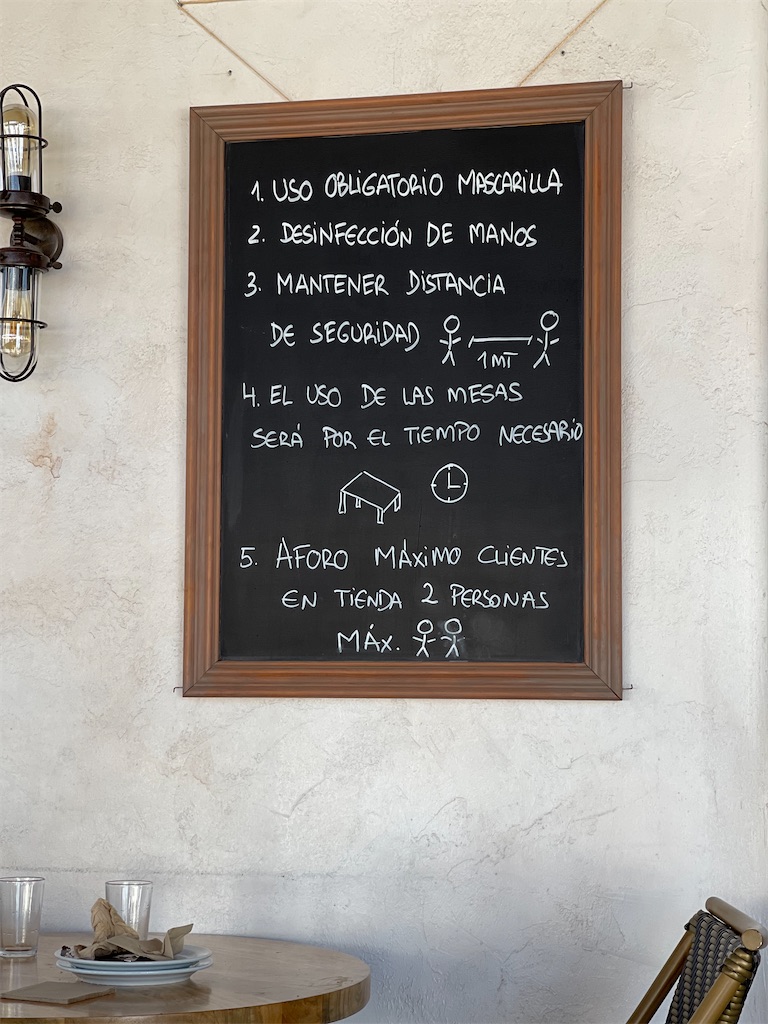 1. USO OBLIGATORIO MASCARILLA
2. DESINFECCIÓN DE MANOS
3. MANTENER DISTANCIA
DE SEGURIDAD
1MT
4. EL USO DE LAS MESAS
SERÁ POR EL TIEMPO NECESARIO
5. ÁFORO MÁXIMO CLIENTES
EN TIENDA 2 PERSONAS
MÁX.